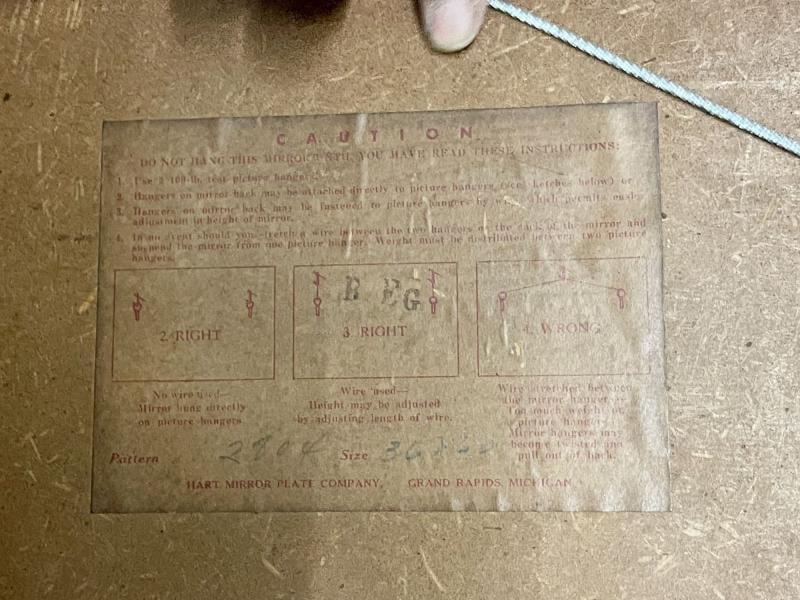 CAUTION
DO NOT HANG THIS MIRROR UNTIL YOU HAVE READ THESE INSTRUCTIONS:
1. Use 2 100-lb. test picture hangers.
2. Hangers on mirror back may be attached directly to picture hangers (see sketches below) or
3. Hangers on mirror back may be fastened to picture hangers by wire which permits easy
adjustment in height of mirror.
4. In no event should you stretch a wire between the two hangers on the back of the mirror and
suspend the mirror from one picture hanger. Weight must be distributed between two picture
hangers.
B EG
2. RIGHT
3. RIGHT
4. WRONG
No wire used—
Mirror hung directly
on picture hangers
Wire used—
Height may be adjusted
by adjusting length of wire.
Wire stretched between
the mirror hangers—
Too much weight on
picture hanger.
Mirror hangers may
become twisted and
pull out of back.
Pattern 2904 Size 36
HART MIRROR PLATE COMPANY, GRAND RAPIDS, MICHIGAN